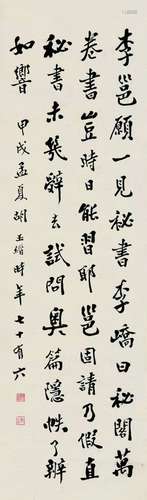 李邕願一見秘書李嶠曰秘閣萬
卷書豈時日能習耶邕固請乃假直
秘書未幾辭去試問奥篇隱帙了辨
如響
甲戌孟夏胡玉縉時年七十有六